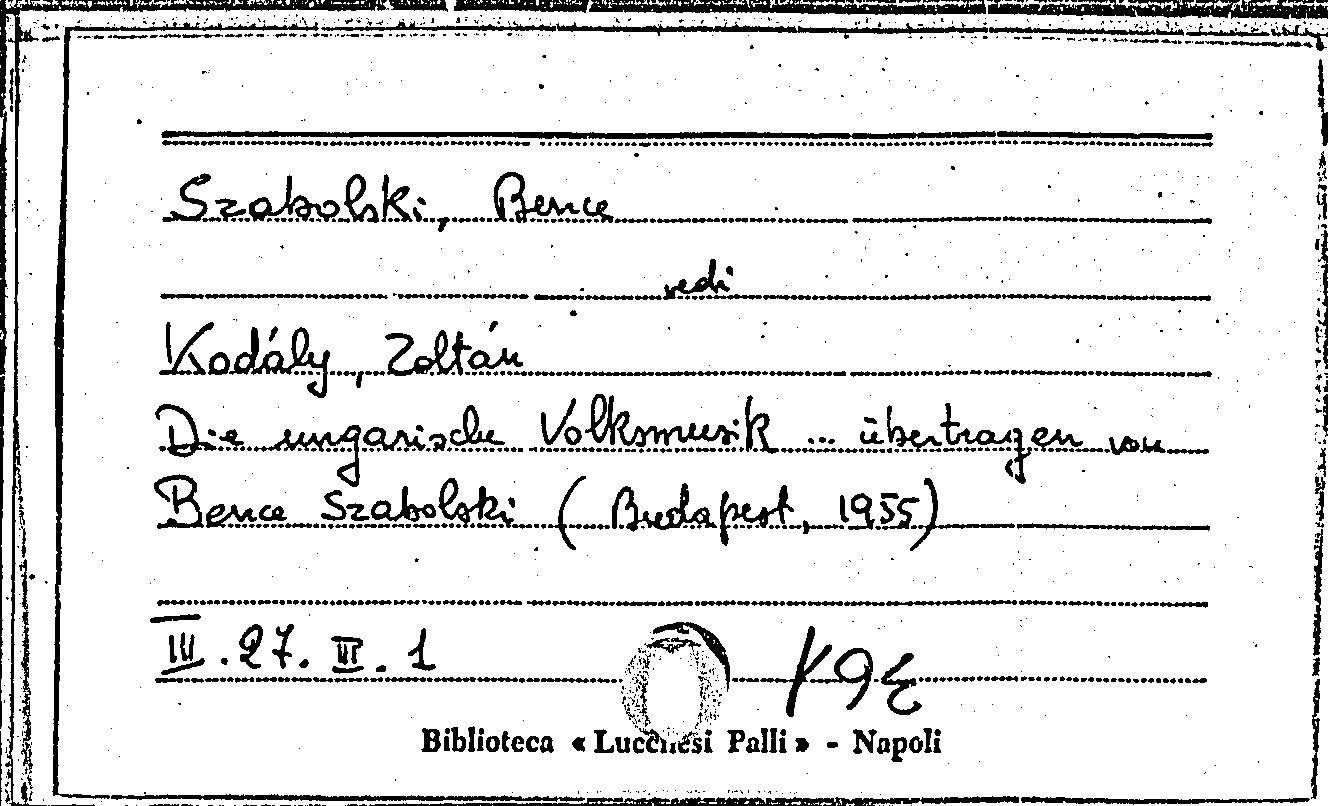 Szabolski, Bence
vedi
Kodály, Zoltán
Die ungarische Volksmusik ... übertragen von
Bence Szabolski (Budapest, 1955)
III.27.III.1
Biblioteca « Lucchesi Palli » - Napoli